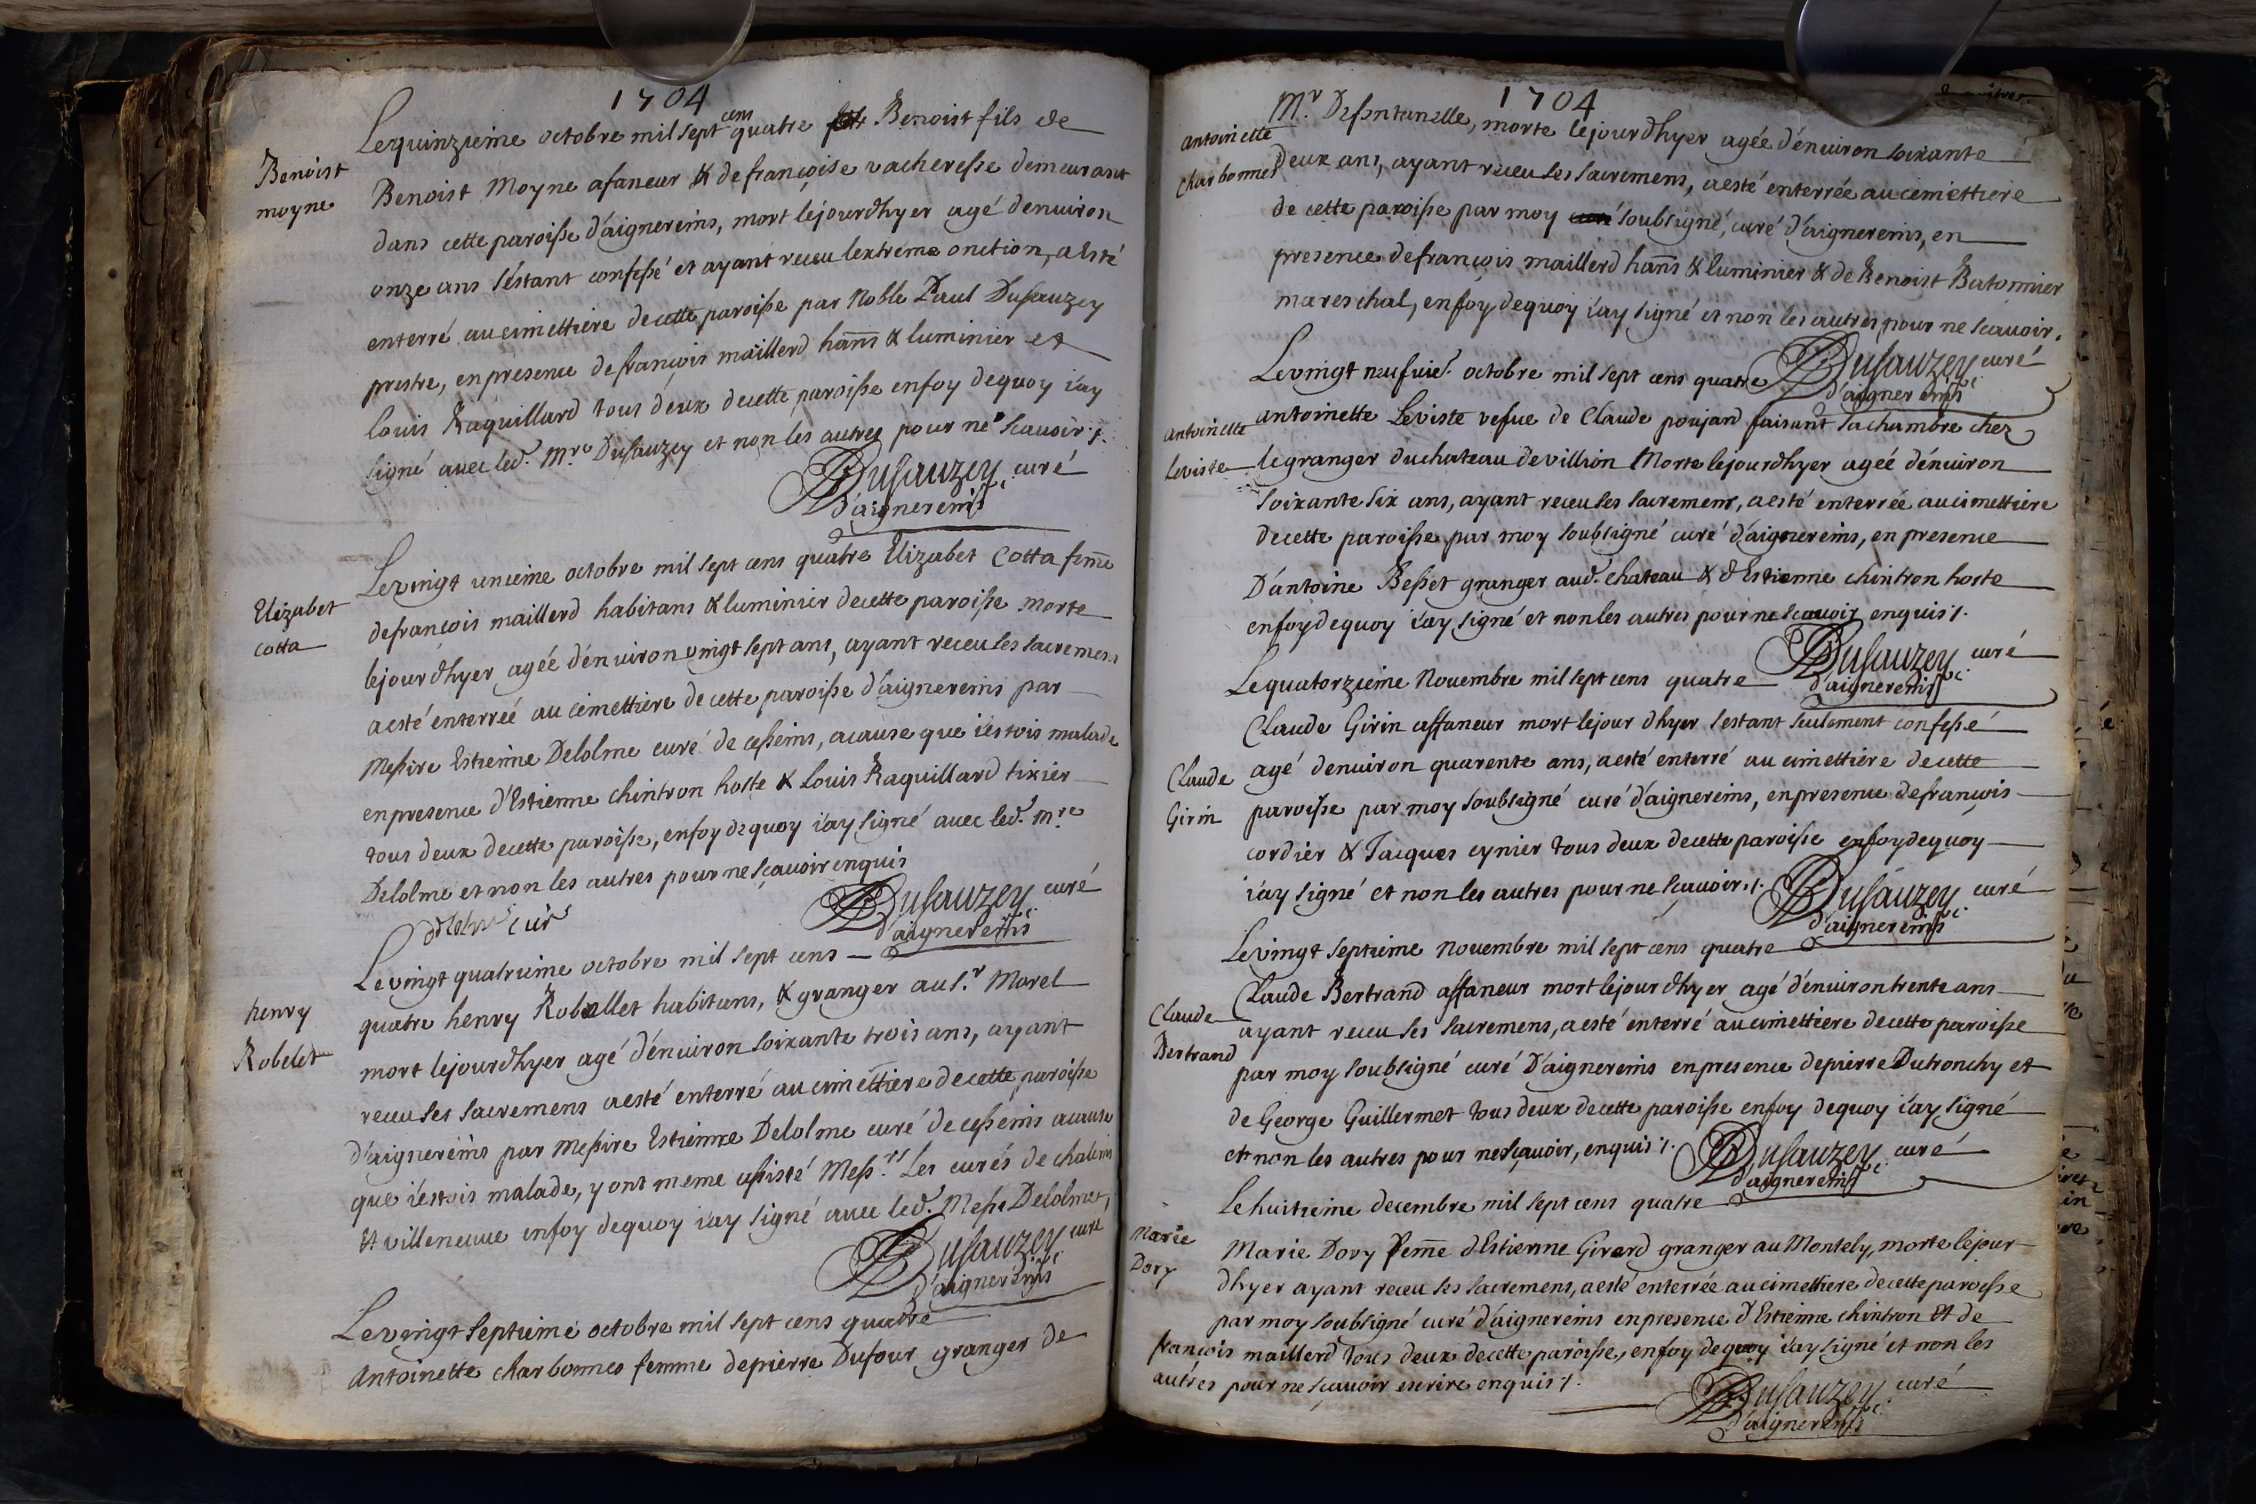 1704
Le quinzieme octobre mil sept cens quatre Benoist fils de
Benoist
moyne
Benoist Moyne afaneur & de françoise vacheresse demeurant
dans cette paroisse d'aignereins, mort le jour dhyer agé denuiron
onze ans s'éstant confessé et ayant receu lextreme onction, a esté
enterré au cimettiere de cette paroisse par Noble Paul Dusauzey
prestre, en presence de françois maillerd hans & luminier et
louis Raquillard tous deux de cette paroisse en foy dequoy i'ay
signé avec led. Mre Dusauzey et non les autres pour ne scauoir ./.
Dusauzey curé
d'aignereins
Le vingt unieme octobre mil sept cens quatre Elizabet Cotta feme
Elizabet
cotta
de francois maillerd habitans & luminier de cette paroisse morte
le jour dhyer agée dénuiron vingt sept ans, ayant receu les sacremens
a esté enterréé au cimettiere de cette paroisse d'aignereins par
Messire Estienne Delolme curé de cesseins, a cause que i'estois malade
en presence d'Estienne chintron hoste & Louis Raquillard tixier
tous deux de cette paroisse, en foy dequoy i'ay signé avec led. Mre
Delolme et non les autres pour ne sçauoir enquis
Delolme curé
Dusauzey curé
d'aignereins
Le vingt quatrieme octobre mil sept cens
henry
Robelet
quatre henry Robellet habitans, & granger au Sr. Morel
mort le jour dhyer agé dénuiron soixante trois ans, ayant
receu ses sacremens a esté enterré au cimettiere de cette paroisse
d'aignereins par Messire Estienne Delolme curé de cesseins a cause
que i'estois malade, y ont meme assisté Messrs. Les curés de chaleins
et villeneuue en foy dequoy i'ay signé auec led. Messe Delolme,
Dusauzey curé
d'aignereins
Le vingt septieme octobre mil sept cens quatre
Antoinette charbonnes femme de pierre Dufour granger de
1704
Mr. Defontanelle, morte le jour dhyer agée dénuiron soixante
antoinette
charbonnes
deux ans, ayant receu ses sacremens, a esté enterrée au cimettiere
de cette paroisse par moy soubsigné, curé d'aignereins, en
presence de françois maillerd hans & luminier & de Benoist Batonnier
mareschal, en foy dequoy i'ay signé et non les autres pour ne scauoir.
Dusauzey curé
d'aignereins
Le vingt neufuie. octobre mil sept cens quatre
antoinette
leviste
antoinette Leviste vefue de Claude poujard faisant sa chambre chez
le granger du chateau de villion Morte le jour dhyer agéé dénuiron
soixante six ans, ayant receu ses sacremens, a esté enterrée au cimettiere
de cette paroisse par moy soubsigné curé d'aignereins, en presence
D'antoine Besset granger aud. chateau & d'Estienne chintron hoste
en foy dequoy i'ay signé et non les autres pour ne scauoir enquis ./.
Dusauzey curé
d'aignereins
Le quatorzieme Nouembre mil sept cens quatre
Claude
Girin
Claude Girin affaneur mort le jour dhyer s'estant seulement confessé
agé denuiron quarente ans, a esté enterré au cimettiere de cette
paroisse par moy soubsigné curé d'aignereins, en presence de françois
cordier & Jacques cynier tous deux de cette paroisse en foy dequoy
i'ay signé et non les autres pour ne sçauoir ./.
Dusauzey curé
d'aignereins
Le vingt septieme nouembre mil sept cens quatre
Claude
Bertrand
Claude Bertrand affaneur mort le jour dhyer agé dénuiron trente ans
ayant receu ses sacremens, a esté enterré au cimettiere de cette paroisse
par moy soubsigné curé D'aignereins en presence de pierre Dutronchy et
de George Guillermet tous deux de cette paroisse en foy dequoy i'ay signé
et non les autres pour ne sçauoir, enquis ./.
Dusauzey curé
d'aignereins
Le huitieme decembre mil sept cens quatre
Marie
Dory
Marie Dory feme d'Estienne Girard granger au Montely, morte le jour
dhyer ayant receu ses sacremens, a esté enterrée au cimettiere de cette paroisse
par moy soubsigné curé d'aignereins en presence d'Estienne chintron et de
françois maillerd tous deux de cette paroisse, en foy dequoy i'ay signé et non les
autres pour ne sçauoir escrire enquis ./.
Dusauzey curé
d'aignereins